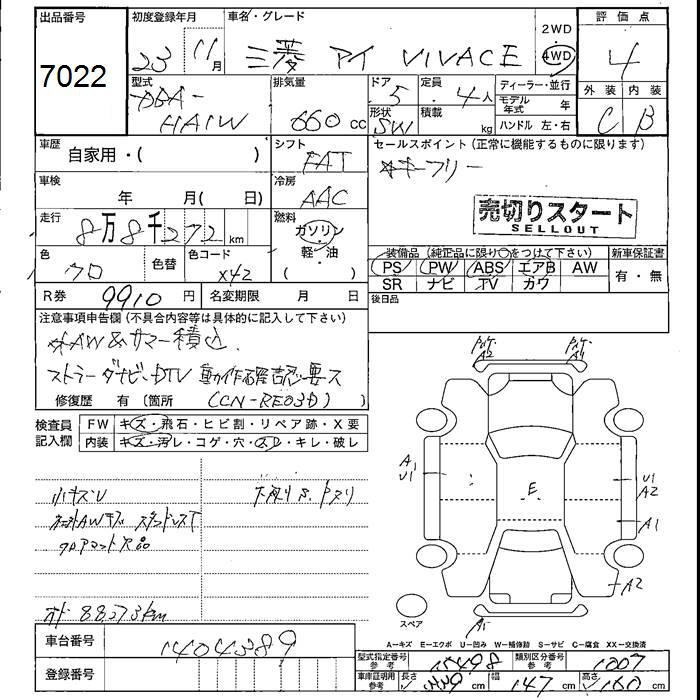 出品番号 初度登録年月 車名・グレード 2WD 評価点
7022 23 11月 三菱 アイ VIVACE 4WD 4
型式 排気量 ドア 定員 ディーラー・並行 外装 内装
DBA- 5 4人 モデル年式 年 C B
HA1W 660cc 形状 積載 ハンドル 左・右
SW kg
車歴 シフト セールスポイント（正常に機能するものに限ります）
自家用・( ) FAT キーフリー
車検 冷房
年 月( 日) AAC 売切りスタート
SELLOUT
走行 燃料
8万8千272km ガソリン
軽・油 装備品（純正品に限り○をつけて下さい） 新車保証書
色 色替 色コード ( ) PS PW ABS エアB AW 有・無
クロ X42 SR ナビ TV カワ
R券 9910円 名変期限 月 日 後日品
注意事項申告欄（不具合内容等は具体的に記入して下さい）
AW&サマー積込
ストラーダナビ・DTV 動作確認要ス
修復歴 有（箇所 (CN-RE03D) ）
検査員 FW キズ・飛石・ヒビ割・リペア跡・X要
記入欄 内装 キズ・汚レ・コゲ・穴・スレ・キレ・破レ
A2 A1
小キズU 下廻りS.
A U1 E U1 A2
A1
フロアマット欠品
A2
スペア
A1
A－キズ E－エクボ U－凹み W－補修跡 S－サビ C－腐食 XX－交換済
車台番号 1404389 型式指定番号 参考 15498 類別区分番号 参考 1007
登録番号 車庫証明用 参考 長さ cm 幅 147cm 高さ 160cm